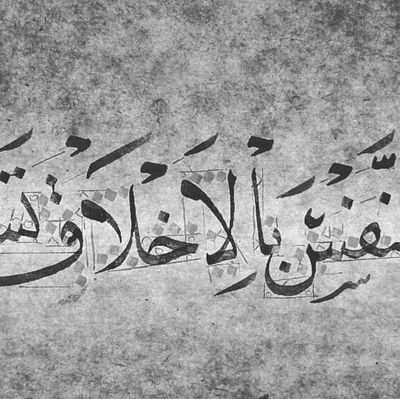 نَّفْسَ بِالأَخْلَاقِ تَس